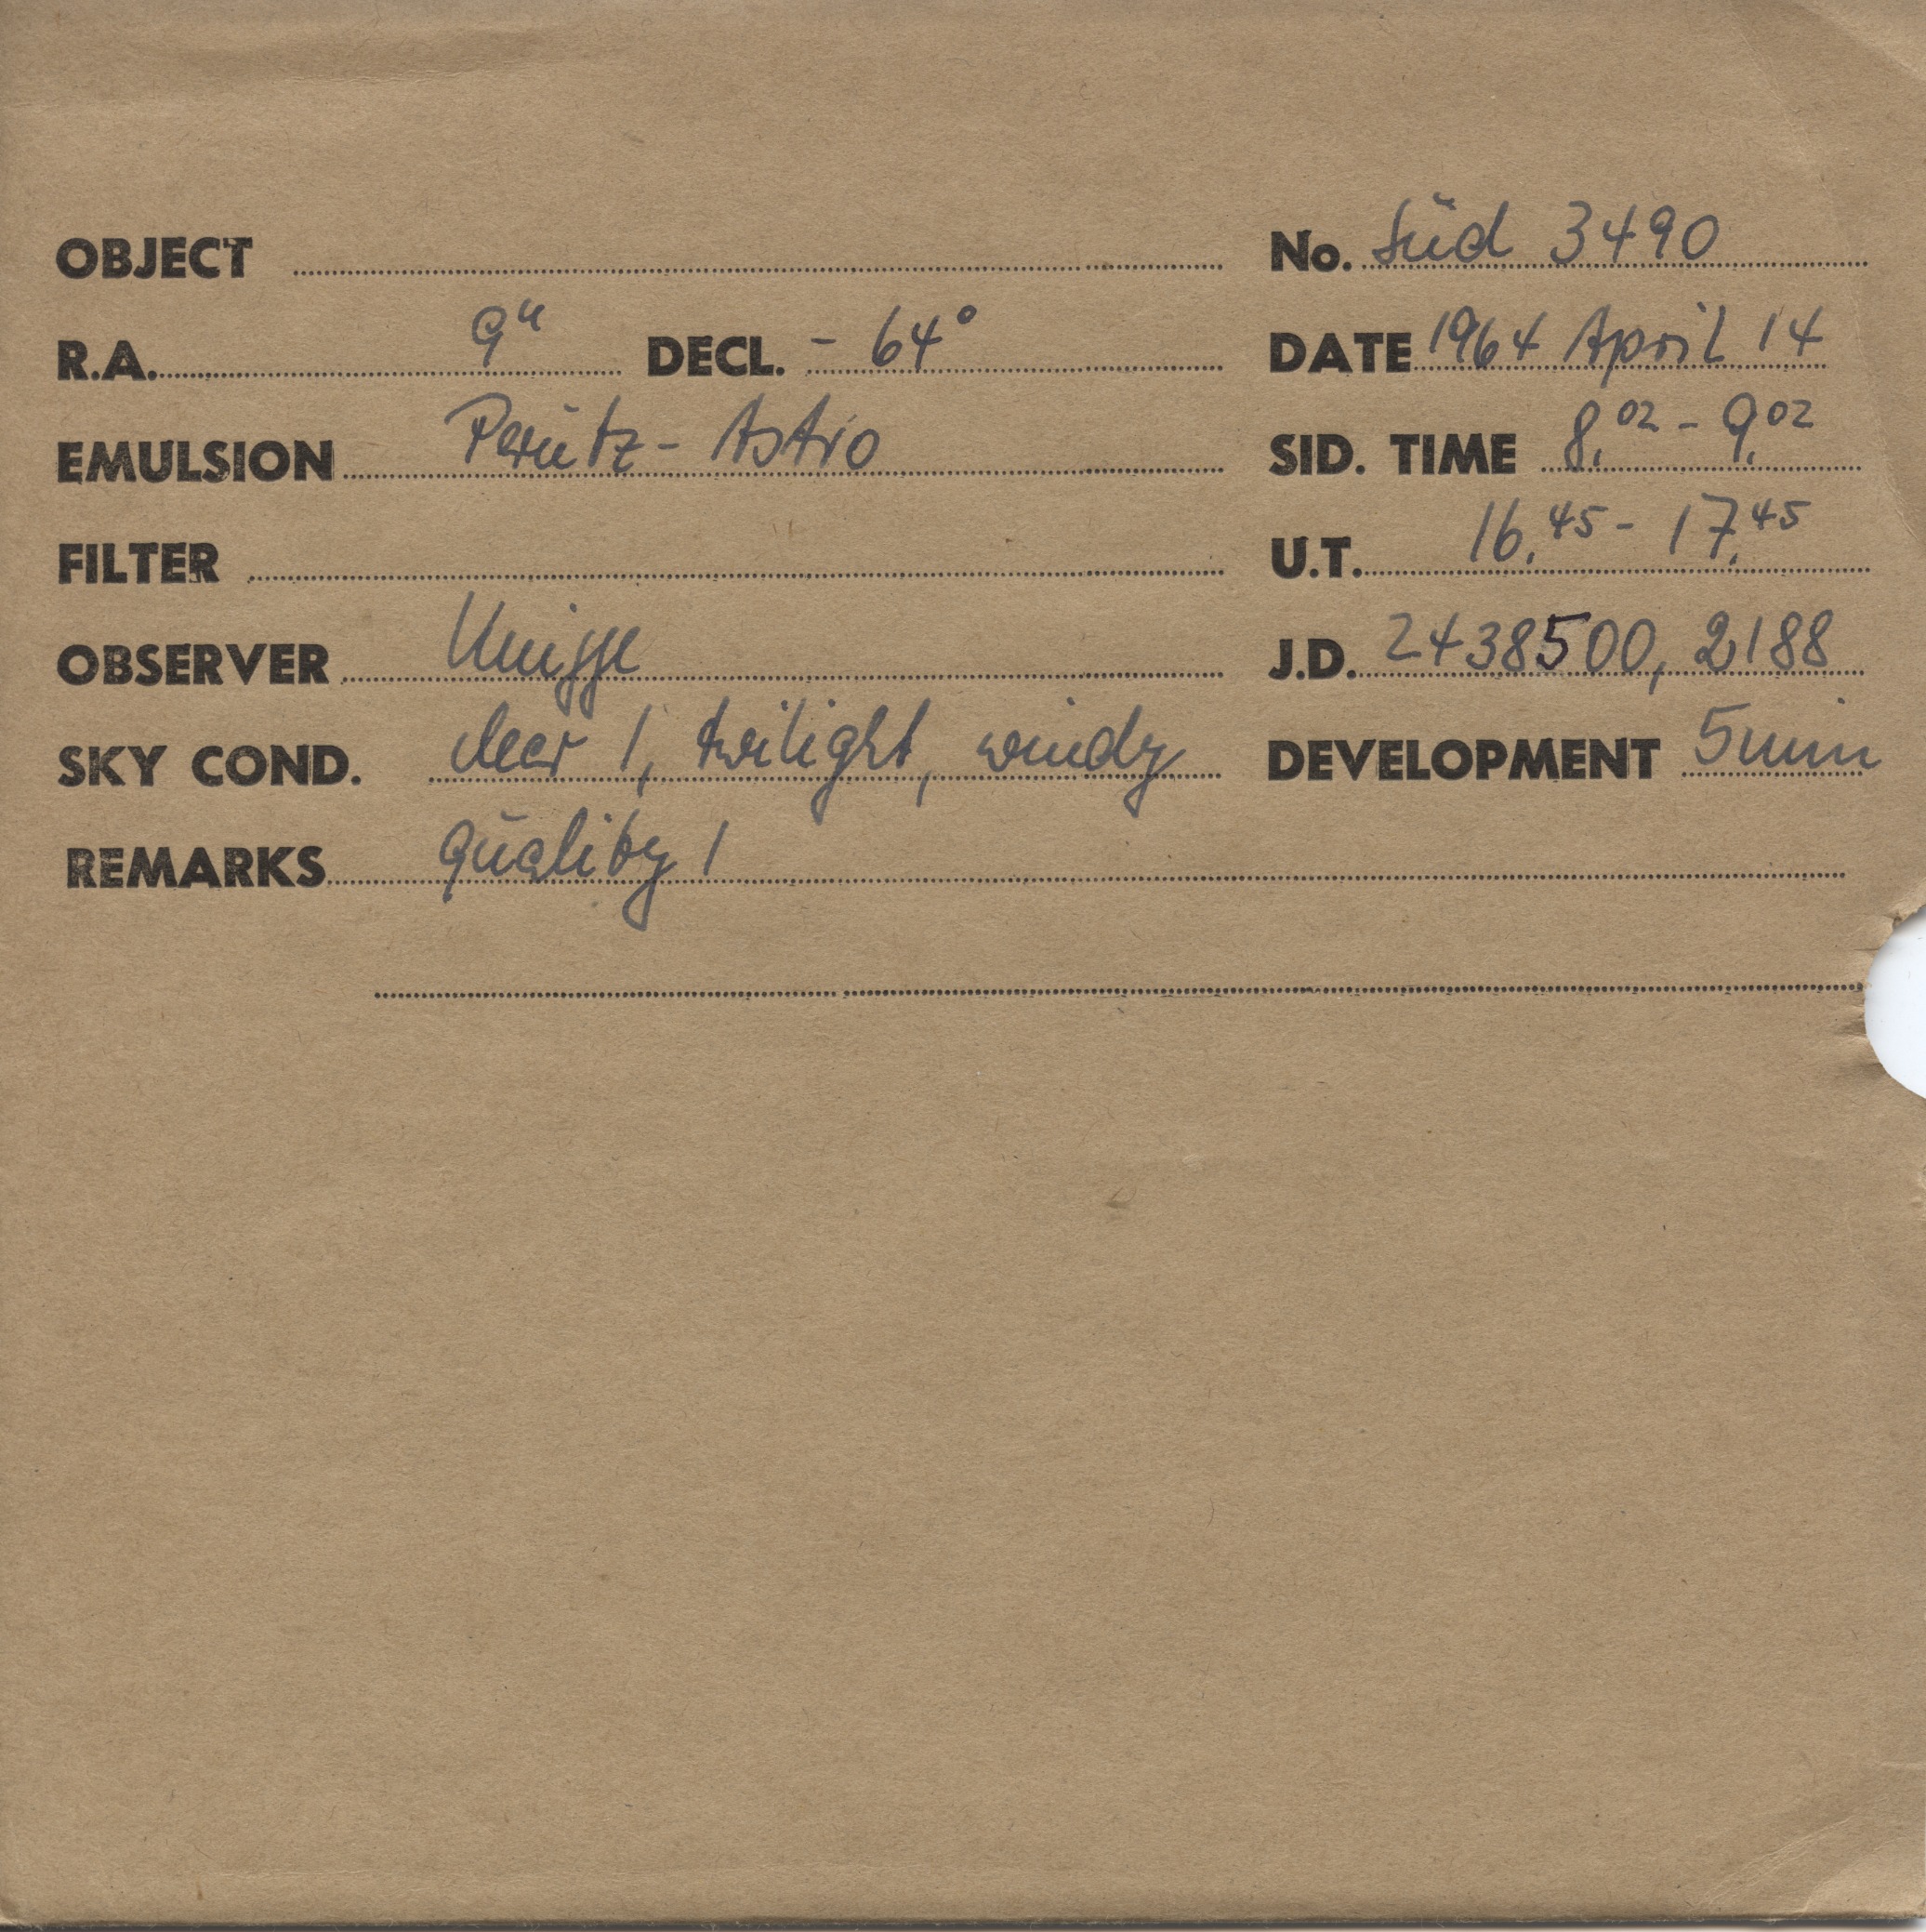 OBJECT No. Süd 3490
R.A. 9h DECL. - 64° DATE 1964 April 14
EMULSION Perutz-Astro SID. TIME 8.02 - 9.02
FILTER U.T. 16.45 - 17.45
OBSERVER J.D. 2438500,2188
SKY COND. clear 1, twilight, windy DEVELOPMENT 5min
REMARKS quality 1